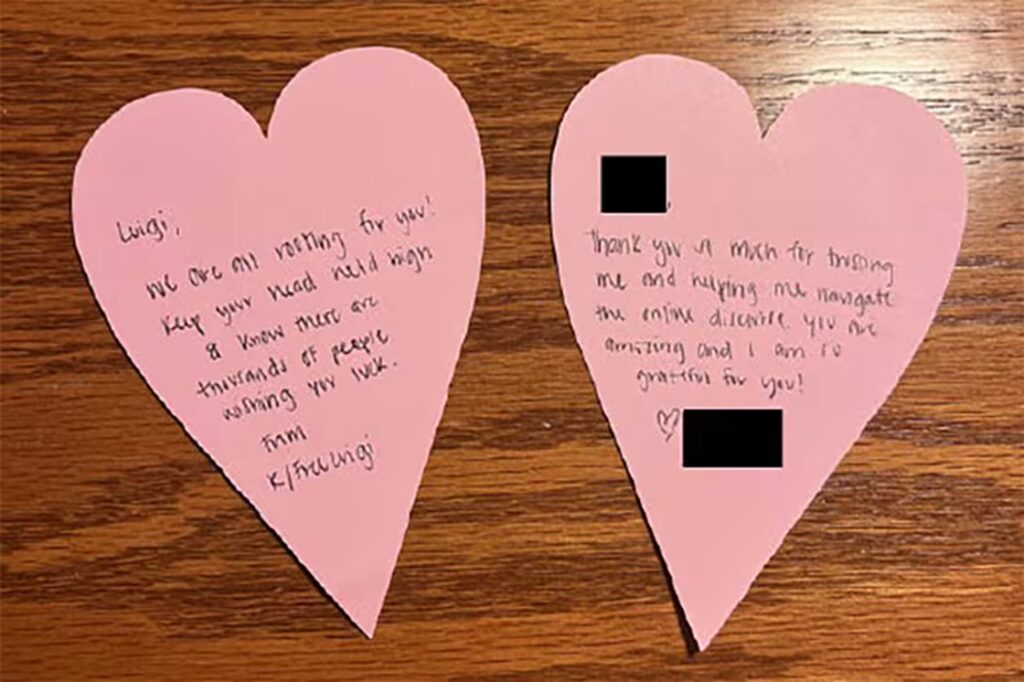 Luigi,
we are all rooting for you!
Keep your head held high
& know there are
thousands of people
wishing you luck.
From
r/FreeLuigi
Thank you so much for trusting
me and helping me navigate
the online discourse. you are
amazing and I am so
grateful for you!